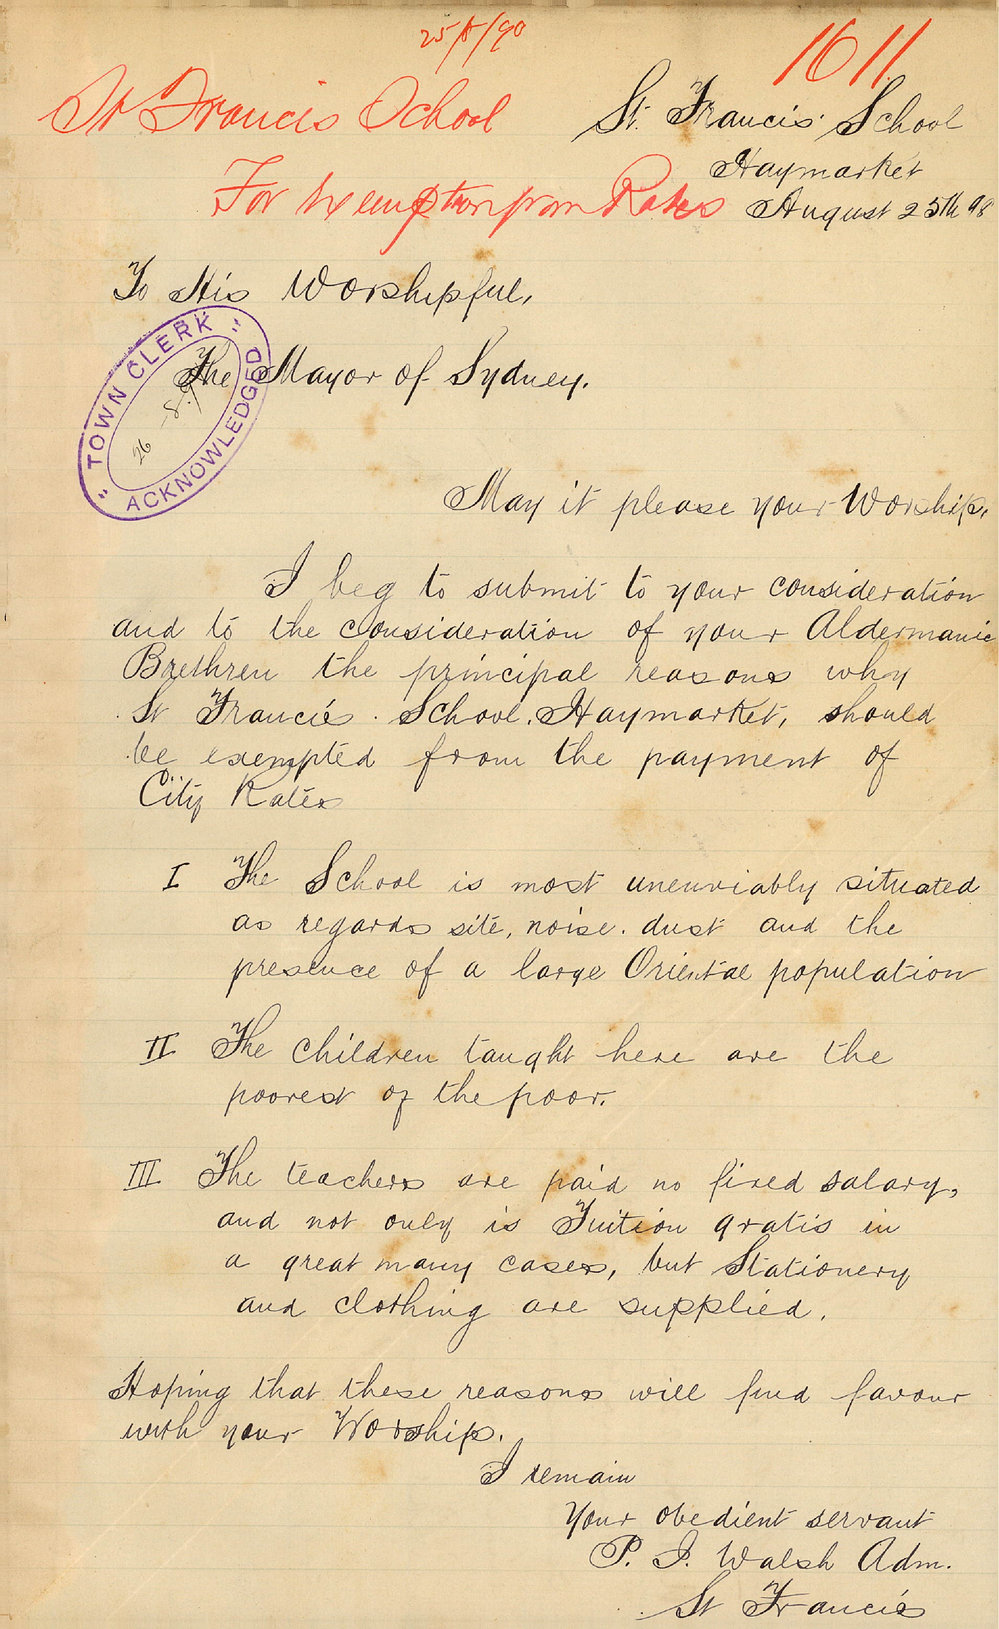 25/8/98
1611
St Francis School
For Exemption from Rates
St. Francis' School
Haymarket
August 25th 98
To His Worshipful,
The Mayor of Sydney.
"TOWN CLERK"
26-8-
ACKNOWLEDGED
May it please your Worship,
I beg to submit to your consideration
and to the consideration of your Aldermanic
Brethren the principal reasons why
St Francis. School. Haymarket, should
be exempted from the payment of
City Rates
I The School is most unenviably situated
as regards site, noise. dust and the
presence of a large Oriental population
II The children taught here are the
poorest of the poor.
III The teachers are paid no fixed salary,
and not only is Tuition gratis in
a great many cases, but Stationery
and clothing are supplied.
Hoping that these reasons will find favour
with your Worship.
I remain
Your obedient servant
P. J. Walsh Adm.
St Francis